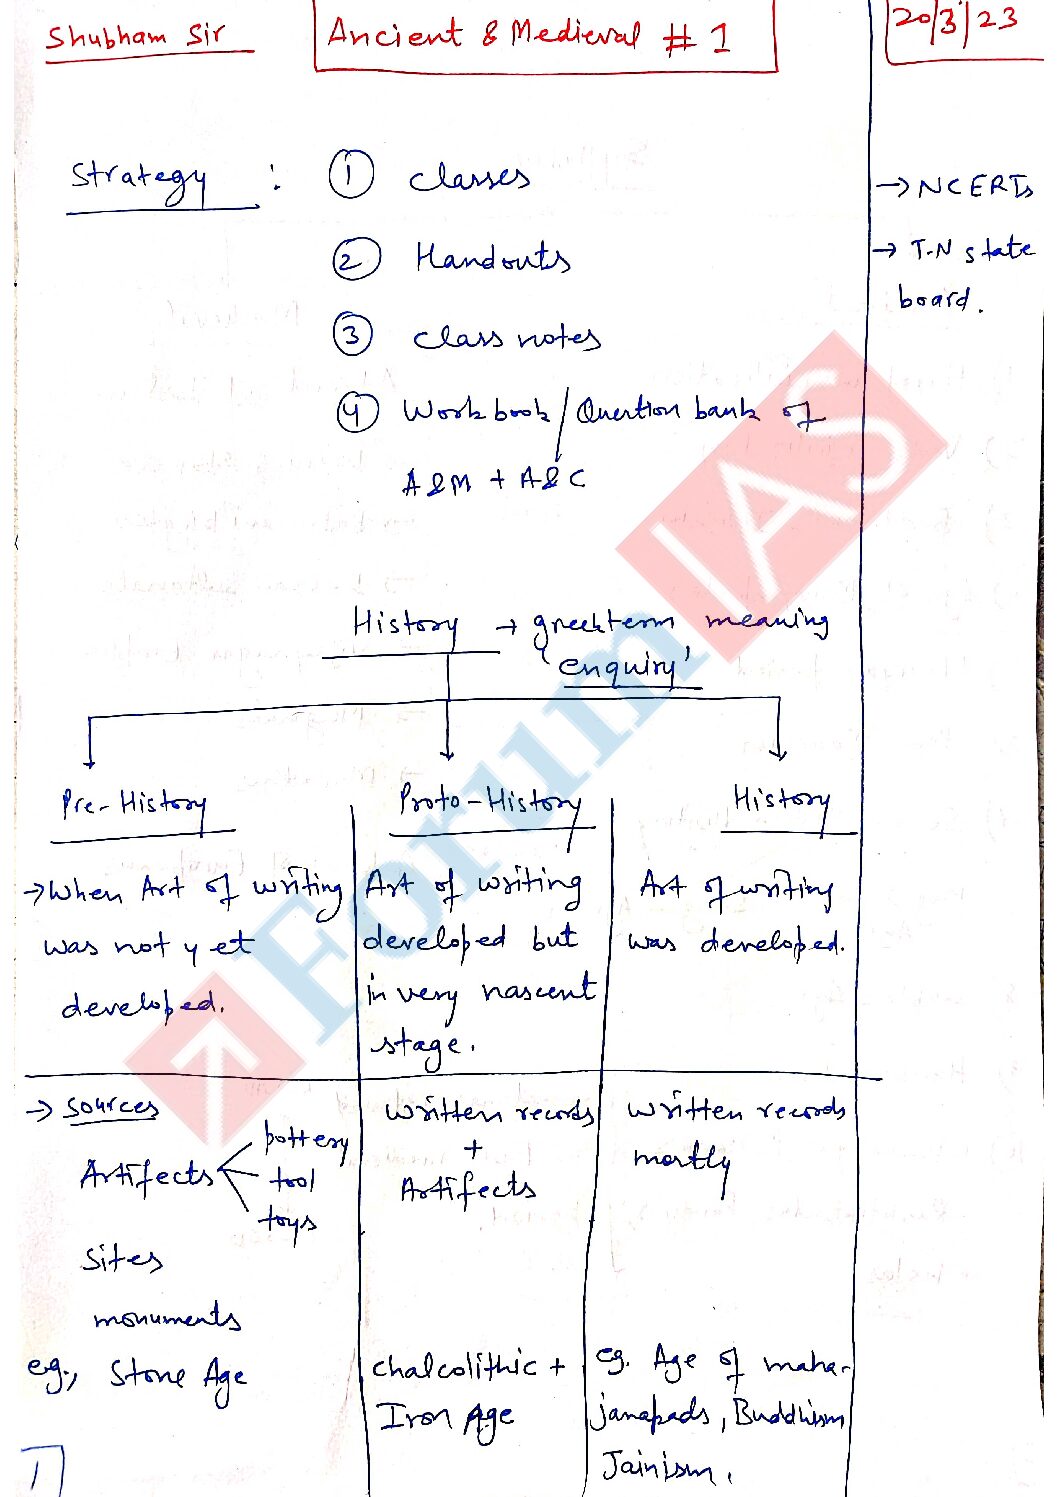 Shubham Sir
Ancient & Medieval # 1
20/3/23
Strategy : ① classes
② Handouts
③ class notes
④ Workbook/Question bank of
A&M + A&C
→ NCERTs
→ T.N state
board.
History → greek term meaning
'enquiry'
Pre-History
→ When Art of writing
was not yet
developed.
Proto-History
Art of writing
developed but
in very nascent
stage.
History
Art of writing
was developed.
→ Sources
Artifects
pottery
tool
toys
Sites
monuments
eg., Stone Age
written records
+
Artifects
Chalcolithic +
Iron Age
written records
mostly
eg. Age of maha-
janapads, Buddhism
Jainism.
1
ForumIAS